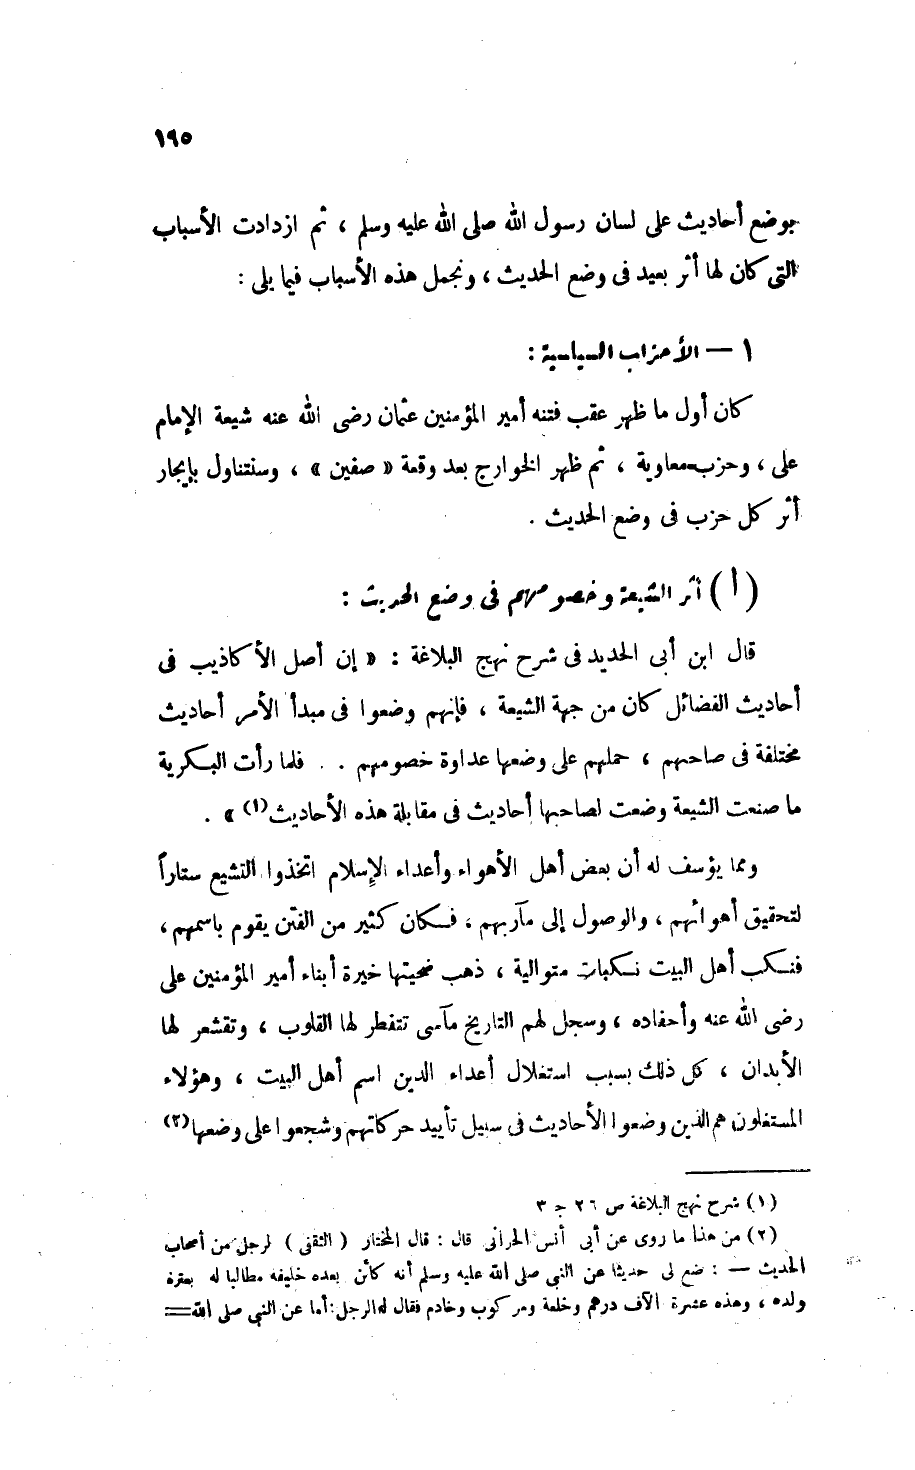 ١٩٥
بوضع أحاديث على لسان رسول الله صلى الله عليه وسلم ، ثم ازدادت الأسباب
التى كان لها أثر بعيد فى وضع الحديث ، ونجمل هذه الأسباب فيما يلى :
١ — الأحزاب السياسية :
كان أول ما ظهر عقب فتنه أمير المؤمنين عثمان رضى الله عنه شيعة الإمام
على ، وحزب معاوية ، ثم ظهر الخوارج بعد وقعة « صفين » ، وسنتناول بإيجار
أثر كل حزب فى وضع الحديث .
( أ ) أثر الشيعة وخصومهم فى وضع الحديث :
قال ابن أبى الحديد فى شرح نهج البلاغة : « إن أصل الأكاذيب فى
أحاديث الفضائل كان من جهة الشيعة ، فإنهم وضعوا فى مبدأ الأمر أحاديث
مختلفة فى صاحبهم ، حملهم على وضعها عداوة خصومهم . . فلما رأت البكرية
ما صنعت الشيعة وضعت لصاحبها أحاديث فى مقابلة هذه الأحاديث(١) » .
ومما يؤسف له أن بعض أهل الأهواء وأعداء الإسلام اتخذوا التشيع ستاراً
لتحقيق أهوائهم ، والوصول إلى مآربهم ، فكان كثير من الفتن يقوم باسمهم ،
فنكب أهل البيت نكبات متوالية ، ذهب ضحيتها خيرة أبناء أمير المؤمنين على
رضى الله عنه وأحفاده ، وسجل لهم التاريخ مآسى تتفطر لها القلوب ، وتقشعر لها
الأبدان ، كل ذلك بسبب استغلال أعداء الدين اسم أهل البيت ، وهؤلاء
المستغلون هم الذين وضعوا الأحاديث فى سبيل تأييد حركاتهم وشجعوا على وضعها(٢)
(١) شرح نهج البلاغة ص ٢٦ ج ٣
(٢) من هذا ما روى عن أبى أنس الحرانى قال : قال المختار ( الثقفى ) لرجل من أصحاب
الحديث — : ضع لى حديثا عن النبى صلى الله عليه وسلم أنه كائن بعده خليفه مطالبا له بعترة
ولده ، وهذه عشرة آلاف درهم وخلعة ومركوب وخادم فقال له الرجل : أما عن النبى صلى الله =